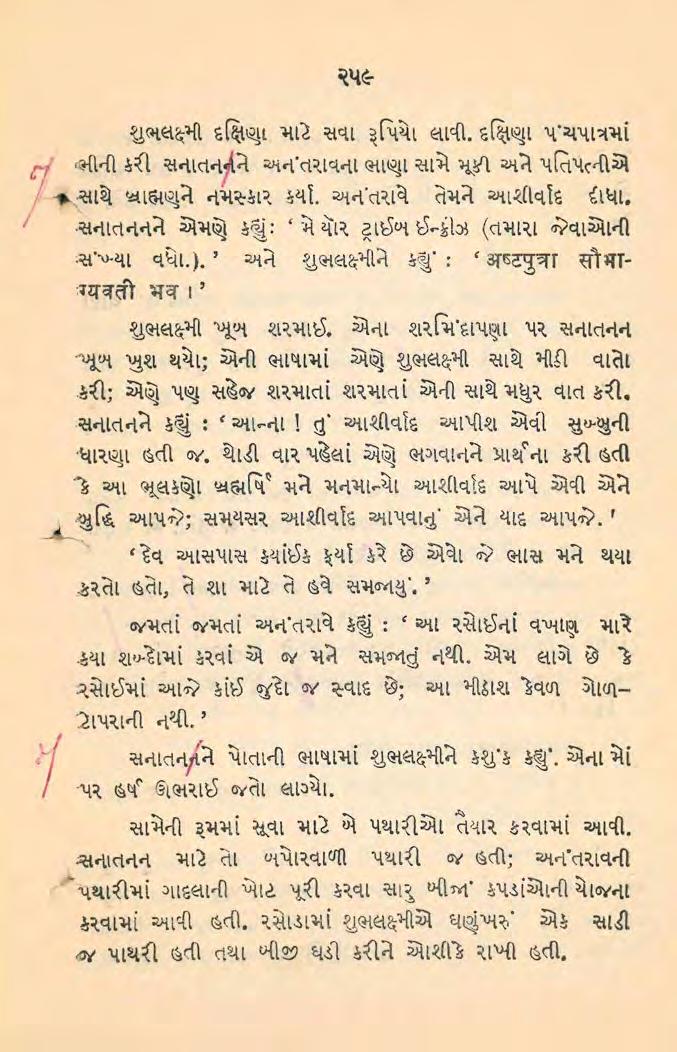 ૨૫૯
શુભલક્ષ્મી દક્ષિણા માટે સવા રૂપિયો લાવી. દક્ષિણા પંચપાત્રમાં
ભીની કરી સનાતનનને અનંતરાવના ભાણા સામે મૂકી અને પતિપત્નીએ
સાથે બ્રાહ્મણને નમસ્કાર કર્યા. અનંતરાવે તેમને આશીર્વાદ દીધા.
સનાતનનને એમણે કહ્યું: ‘ મે યૉર ટ્રાઈબ ઈન્ક્રીઝ (તમારા જેવાઓની
સંખ્યા વધો.). ’ અને શુભલક્ષ્મીને કહ્યું : ‘ अष्टपुत्रा सौभा-
ग्यवती भव । ’
શુભલક્ષ્મી ખૂબ શરમાઈ. એના શરમિંદાપણા પર સનાતનન
ખૂબ ખુશ થયો; એની ભાષામાં એણે શુભલક્ષ્મી સાથે મીઠી વાતો
કરી; એણે પણ સહેજ શરમાતાં શરમાતાં એની સાથે મધુર વાત કરી.
સનાતનને કહ્યું : ‘ આન્ના ! તું આશીર્વાદ આપીશ એવી સુબ્બુની
ધારણા હતી જ. થોડી વાર પહેલાં એણે ભગવાનને પ્રાર્થના કરી હતી
કે આ ભૂલકણો બ્રહ્મર્ષિ મને મનમાન્યો આશીર્વાદ આપે એવી એને
બુદ્ધિ આપજે; સમયસર આશીર્વાદ આપવાનું એને યાદ આપજે. ’
‘ દેવ આસપાસ કયાંઈક ફર્યા કરે છે એવો જે ભાસ મને થયા
કરતો હતો, તે શા માટે તે હવે સમજાયું. ’
જમતાં જમતાં અનંતરાવે કહ્યું : ‘ આ રસોઈનાં વખાણ મારે
કયા શબ્દોમાં કરવાં એ જ મને સમજાતું નથી. એમ લાગે છે કે
રસોઈમાં આજે કાંઈ જુદો જ સ્વાદ છે; આ મીઠાશ કેવળ ગોળ–
ટોપરાની નથી. ’
સનાતનનને પોતાની ભાષામાં શુભલક્ષ્મીને કશુંક કહ્યું. એના મોં
પર હર્ષ ઊભરાઈ જતો લાગ્યો.
સામેની રૂમમાં સૂવા માટે બે પથારીઓ તૈયાર કરવામાં આવી.
સનાતનન માટે તો બપોરવાળી પથારી જ હતી; અનંતરાવની
પથારીમાં ગાદલાની ખોટ પૂરી કરવા સારુ બીજાં કપડાંઓની યોજના
કરવામાં આવી હતી. રસોડામાં શુભલક્ષ્મીએ ઘણુંખરું એક સાડી
જ પાથરી હતી તથા બીજી ઘડી કરીને ઓશીકે રાખી હતી.